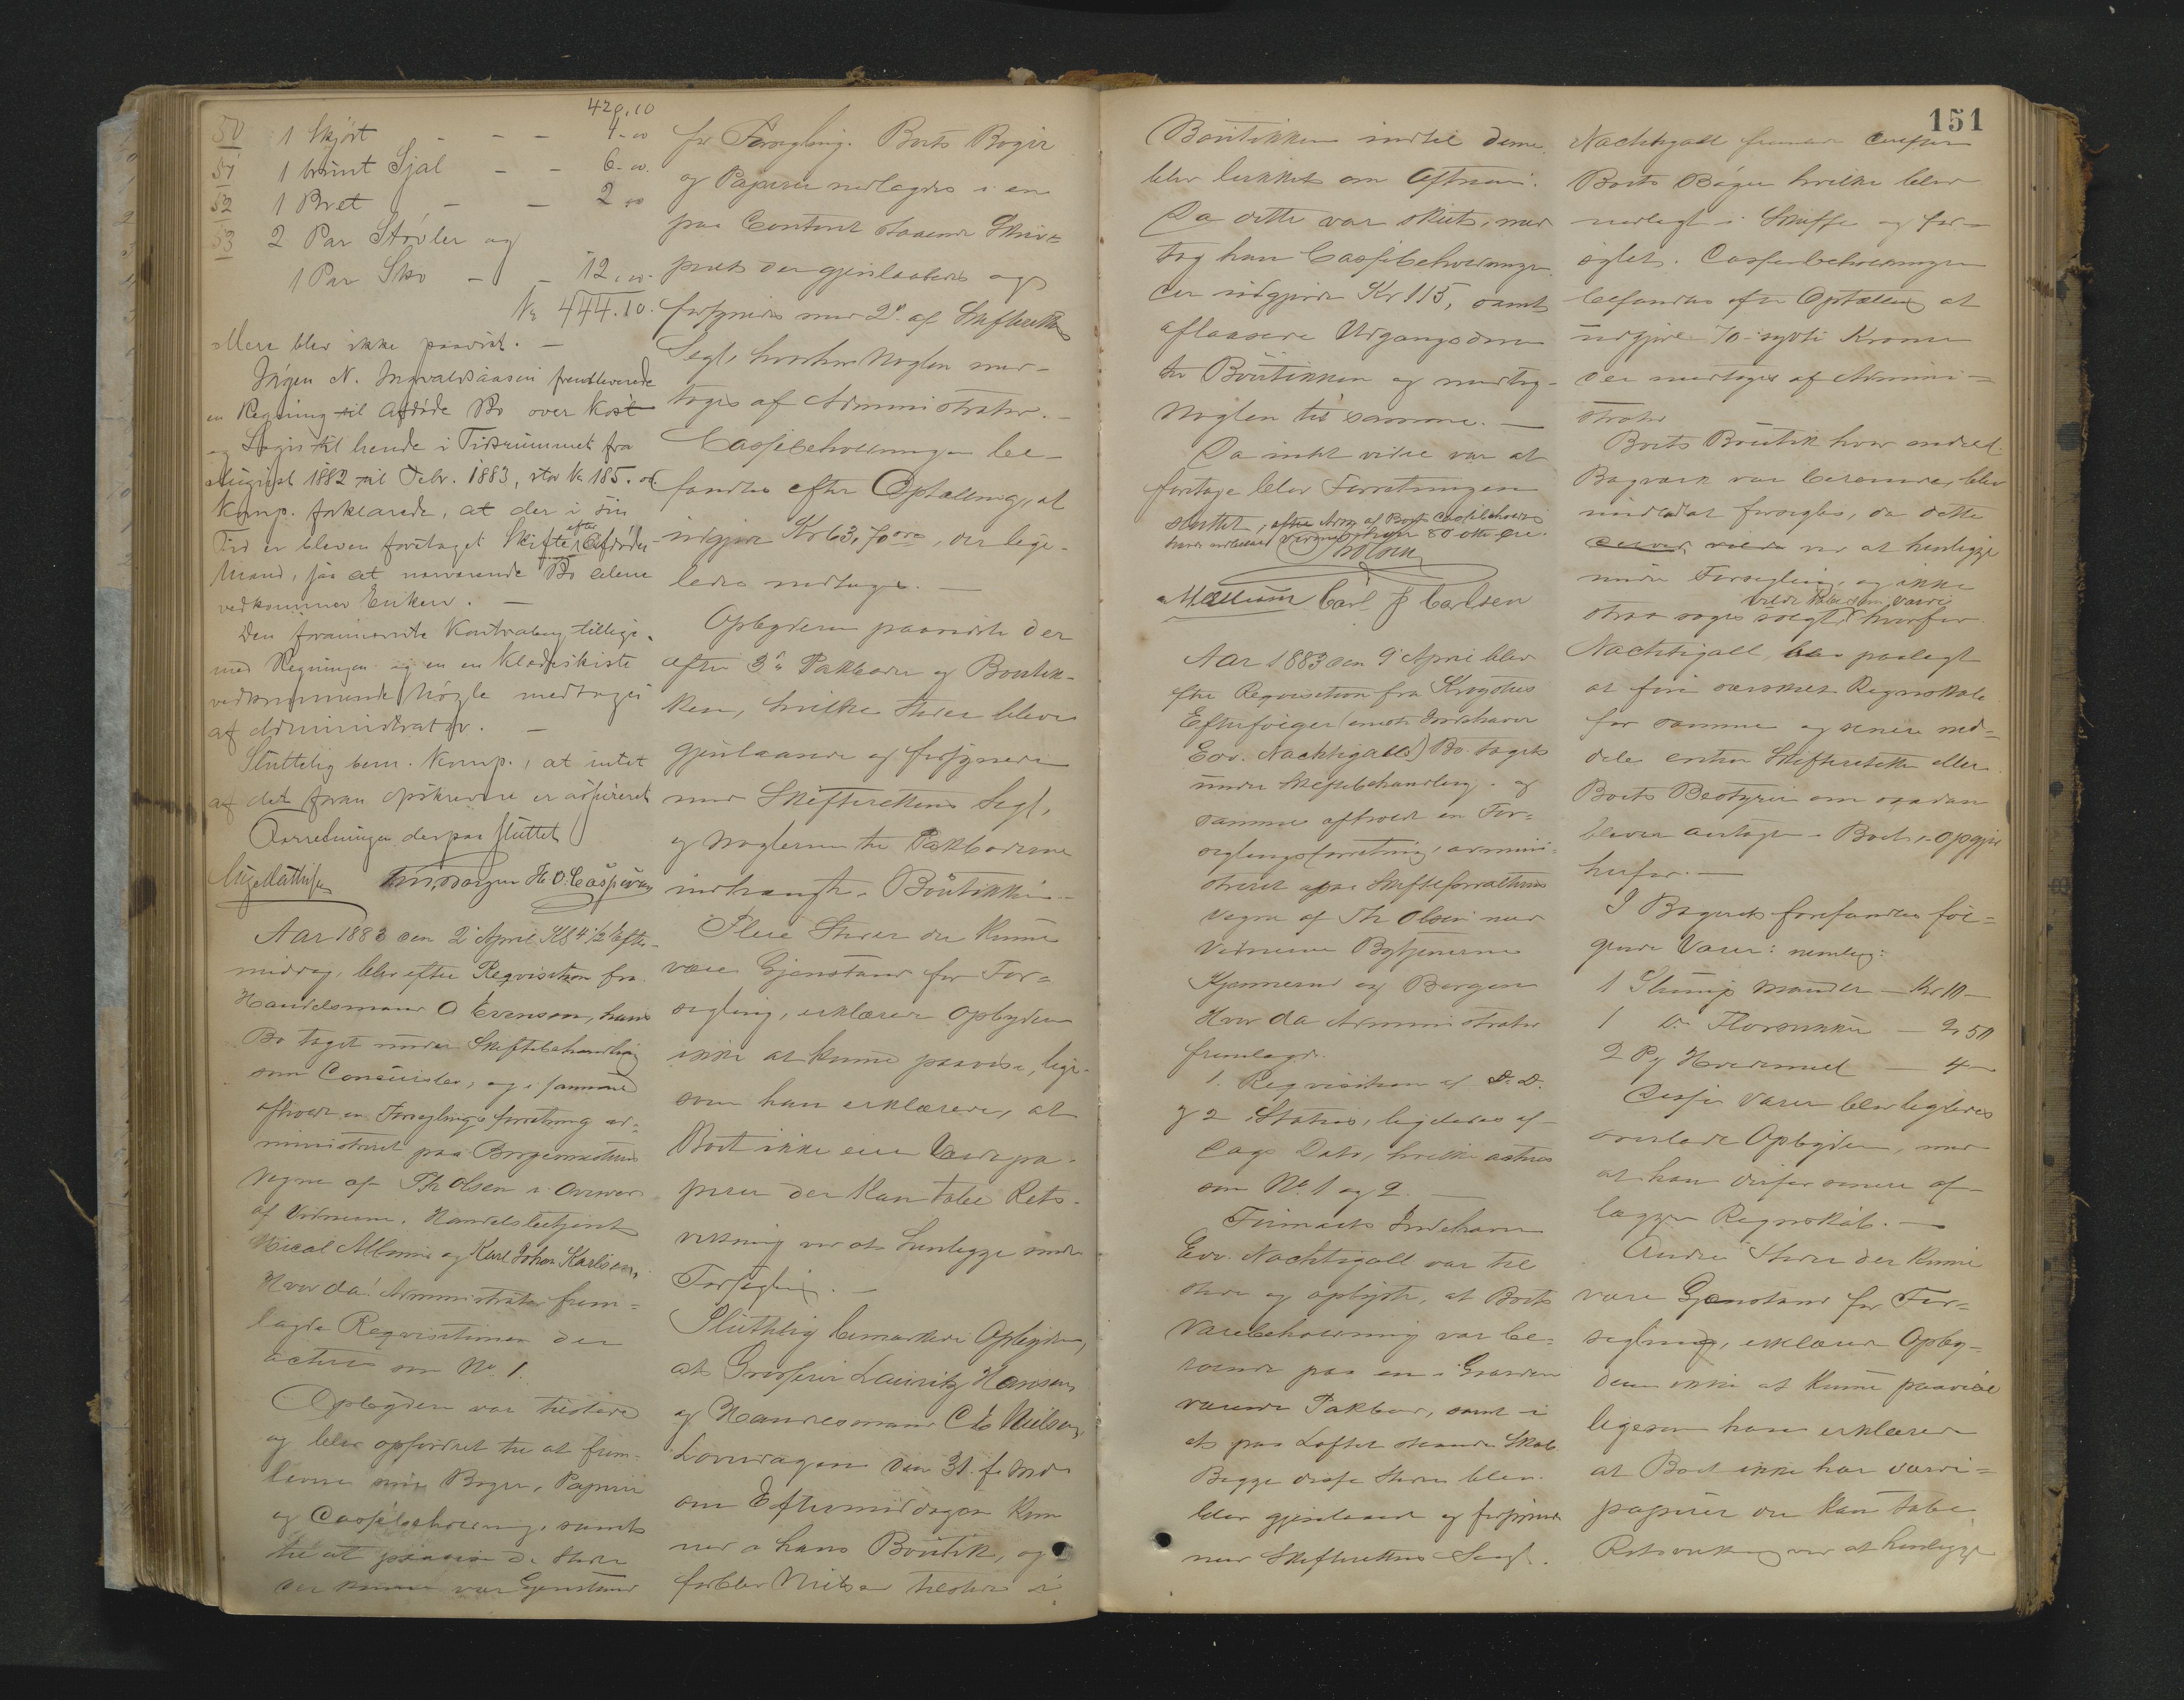 420.10
50 1 Skjört - - - 4-00
51 1 brunt Sjal - - 6-00.
52 1 Bret - - 2 00
53 2 Par Stövler og
1 Par Sko - - 12.00.
Kr 444.10.
Mere blev ikke paavist. —
N. Ingvaldsen fremleverede
en Regning til Afdöde Bo over Kost
og Logis til hende i Tidsrummet fra
August 1882 til Febr. 1883, stor Kr 185.00.
Komp. forklarede, at der i sin
Tid er bleven foretaget Skifte efter Afdödes
Mand, saa at nærværende Bo alene
vedkommer Enken. —
Den forannævnte Kontrabog tillige-
med Regningen og en en Klædeskiste
vedkommende Nögle medtoges
af Administrator. —
Sluttelig bem. Komp., at intet
af det foran opskrevne er assureret
Forretningen derpaa sluttet
H. O. Caspersen
Aar 1883 den 2 April Kl 4 1/2 Efter-
middag, blev efter Reqvisition fra
Handelsmand O Evensen, hans
Bo taget under Skiftebehandling
som Concursbo, og i samme
afholdt en Forseglingsforretning ad-
ministreret paa Borgermesterens
Vegne af Th Olsen i Overvær
af Vidnerne, Handelsbetjent
Micael Albom og Karl Johan Karlsen,
Hvor da! Administrator frem-
lagde Reqvisitionen der
acteres som No 1.
Opbyderen var tilstede
og blev opfordret til at frem-
levere sine Böger, Papirer
og Cassebeholdning, samt
til at paavise de Steder
der kunne være Gjenstand
for Forsegling. Boets Böger
og Papirer nedlagdes i en
paa Contoret staaende Skriv-
pult der gjenlaastes og
forsynedes med 2de af Skifterettens
Segl, hvorhos Nöglen med-
toges af Administrator. —
Cassebeholdningen be-
fandtes efter Optælling, at
udgjöre Kr 63,70 öre, der lige-
ledes medtoges. —
Opbyderen paaviste der
efter 3de Pakboder og Boutik-
ken, hvilke Steder bleve
gjenlaasede og forsynede
med Skifterettens Segl,
og Nöglerne til Pakboderne
indhængt i Boutikken. —
Flere Steder der kunne
være Gjenstand for For-
segling, erklærede Opbyderen
ikke at kunne paavise, lige-
som han erklærede, at
Boet ikke eier Værdipa-
pirer der kan tabe Rets-
virkning ved at henlegge under
Forsegling. —
Sluttelig bemærkede Opbyderen,
at Grosserer Lauritz Hansen
og Handelsmand Chs Nielsen,
Löverdagen den 31 f. Md.
om Eftermiddagen kom
ned i hans Boutik, og
forblev Nielsen tilstede i
151
Boutikken indtil denne
blev lukket om Aftenen.
Da dette var skeet, med
tog han Cassebeholdningen
der udgjorde Kr 115, samt
aflaasede Udgangsdören
til Boutikken og medtog
Nöglen til samme. —
Da intet videre var at
foretage blev Forretningen
sluttet,
Th Olsen
Mællum Carl J Carlsen
Aar 1883 den 9 April blev
efter Reqvisition fra Krogstus
Efterfölger (eneste Indehaver
Edv. Nachtigall) Bo taget
under Skiftebehandling, og
samme afholdt en For-
seglingsforretning, admini-
streret paa Skifteforvalterens
Vegne af Th Olsen med
Vidnerne Bytjenerne
Kjennerud og Borgen
Hvor da Administrator
fremlagde.
1. Reqvisition af D. D.
og 2 Status, ligeledes af
Dags Dato, hvilke acteres
som No. 1 og 2. —
Firmaets Indehaver
Edv. Nachtigall var til
stede og oplyste, at Boets
Varebeholdning var be-
roende paa en i Gaarden
værende Pakbod, samt i
et paa Loftet staaende Skab
Begge disse Steder blev
blev gjenlaaset og forsynet
med Skifterettens Segl.
Nachtigall fremlagde derefter
Boets Böger hvilke blev
nedlagt i Skuffe og for-
seglet. Cassebeholdningen
befandtes efter Optælling at
udgjöre 70 - sytti Kroner
der medtoges af Admini-
strator
Boets Boutik hvor endel
Bagværk var beroende, blev
undladt forseglet, da dette
ved at henligge
under Forsegling, og ikke
vilde tabe sin Værdi
strax toges solgt, hvorfor
Nachtigall blev paalagt
at före særskilt Regnskab
for samme og senere med-
dele enten Skifteretten eller
Boets Bestyrer om saadan
bliver antaget i Boet, - Opgjör
herfor. —
I Bageriet forefandtes föl-
gende Varer: nemlig:
1 Slump Mandler — Kr 10 —
1 Do Flormelkke — 2,50
2 Pg Hvedemel — 4 —
Disse Varer blev ligeledes
overladt Opbyderen, mod
at han derfor senere af-
lægger Regnskab. —
Andre Steder der kunne
være Gjenstand for For-
segling, erklærede Opby-
deren ikke at kunne paavise
ligesom han erklærede
at Boet ikke har Værdi-
papirer der kan tabe
Retsvirkning ved at henligge